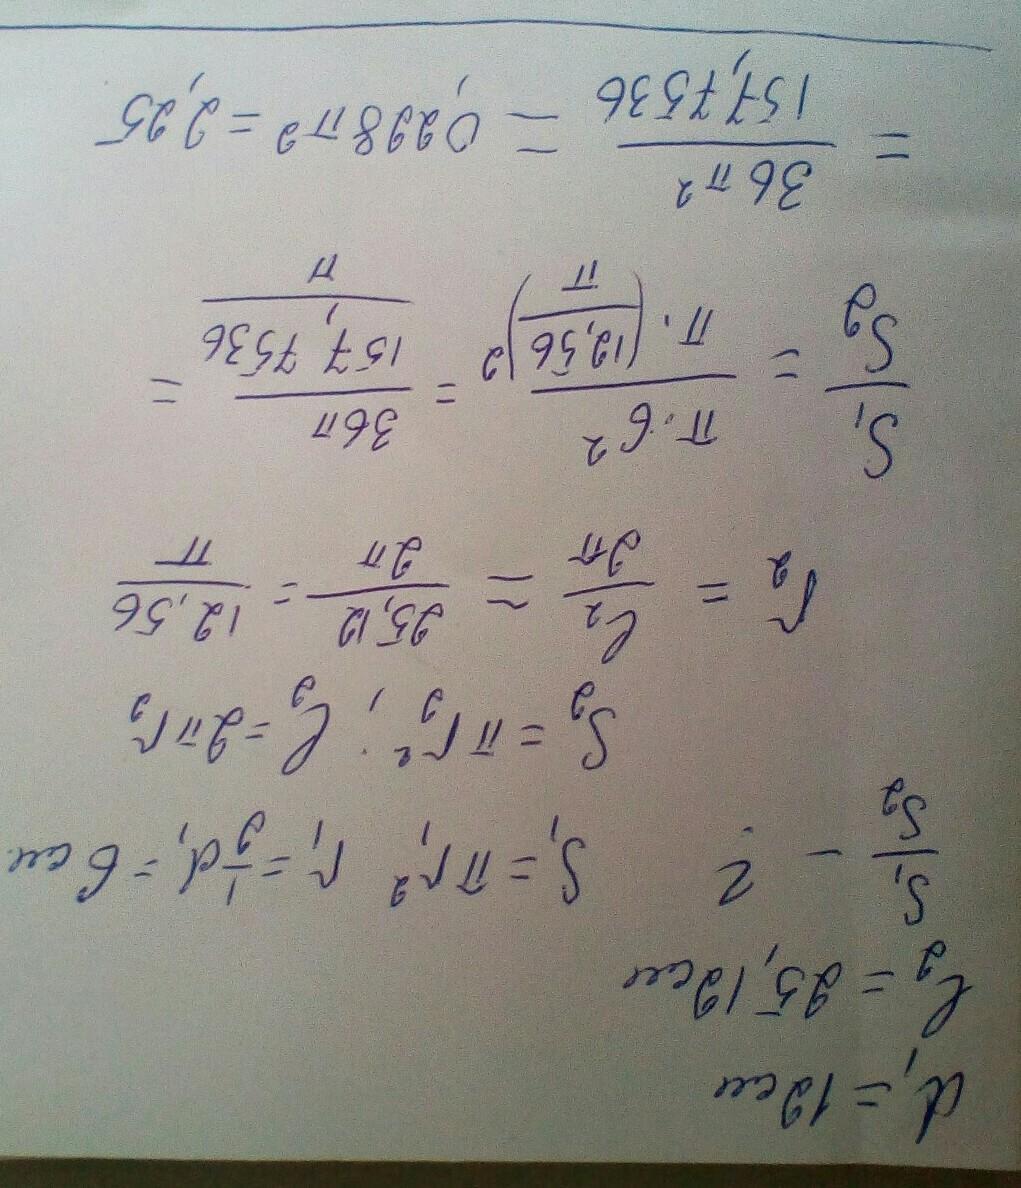 d₁ = 12 см
ℓ₂ = 25,12 см
S₁/S₂ - ? S₁ = πr₁² r₁ = 1/2 d₁ = 6 см
S₂ = πr₂²; ℓ₂ = 2πr₂
r₂ = ℓ₂/2π = 25,12/2π = 12,56/π
S₁/S₂ = π·6²/(π·(12,56/π)²) = 36π/(157,7536/π) =
= 36π²/157,7536 = 0,228π² = 2,25